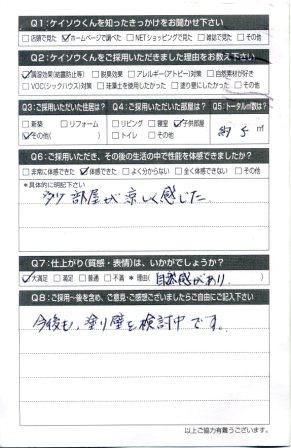 Q1:ケイソウくんを知ったきっかけをお聞かせ下さい
□店頭で見た ☑ホームページで調べた □NETショッピングで見た □雑誌で見た □その他
Q2:ケイソウくんをご採用いただきました理由をお教え下さい
☑調湿効果(結露防止等) □脱臭効果 □アレルギー(アトピー)対策 □自然素材が好き
□VOC(シックハウス)対策 □珪藻土を使用したかった □塗り壁にしたかった □その他
Q3:ご採用いただいた住居は?
□新築 □リフォーム
☑その他( )
Q4:ご採用いただいた部屋は?
□リビング □寝室 ☑子供部屋
□トイレ □その他
Q5:トータル㎡数は?
約5 ㎡
Q6:ご採用いただき、その後の生活の中で性能を体感できましたか?
□非常に体感できた ☑体感できた □よく分からない □全く体感できない □その他
*具体的に明記下さい
部屋が涼しく感じた
Q7:仕上がり(質感・表情)は、いかがでしょうか?
☑大満足 □満足 □普通 □不満 *理由( 自然感があり )
Q8:ご採用〜後を含め、ご意見・ご感想ございましたらご自由にご記入下さい
今後も、塗り壁を検討中です。
以上ご協力有難うございます。